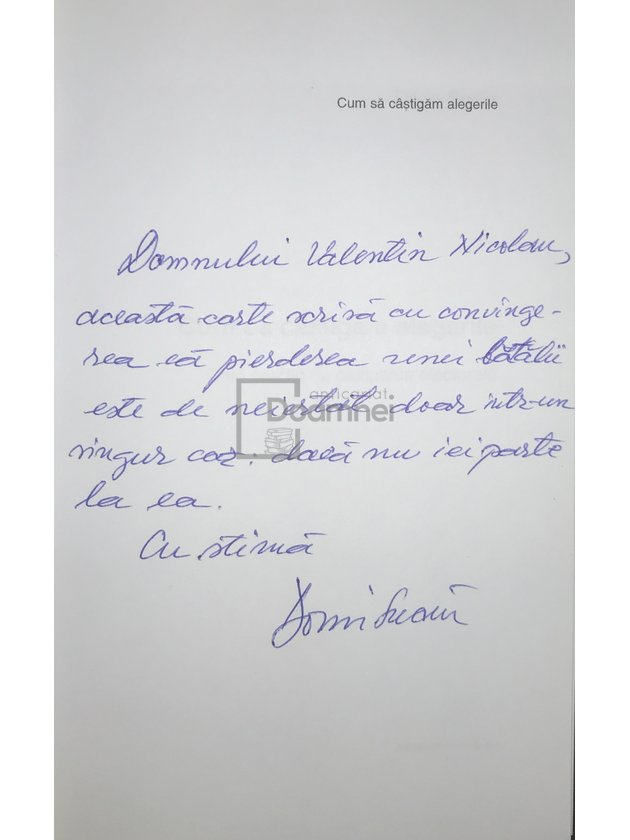 Cum să câștigăm alegerile
Domnului Valentin Nicolau,
această carte scrisă cu convinge-
rea că pierderea unei bătălii
anticariat
este de neiertat doar într-un
Doamnei
singur caz: dacă nu iei parte
la ea.
Cu stimă